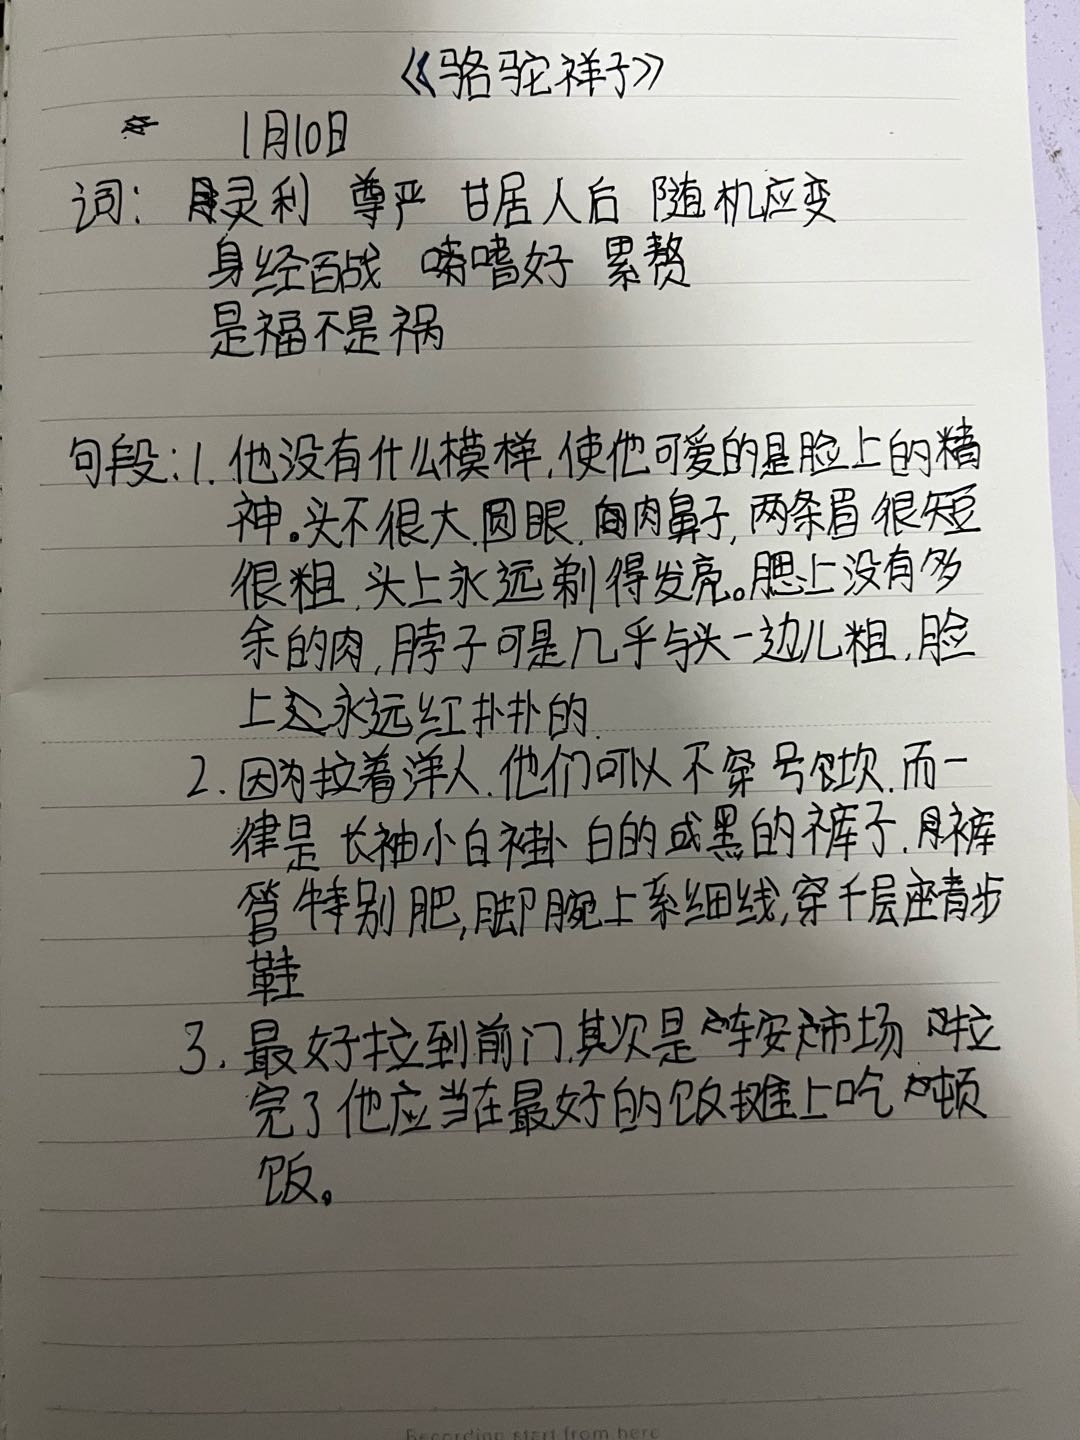 《骆驼祥子》
1月10日
词：灵利 尊严 甘居人后 随机应变
身经百战 嗜好 累赘
是福不是祸
句段：1.他没有什么模样，使他可爱的是脸上的精
神。头不很大，圆眼，肉鼻子，两条眉很短
很粗，头上永远剃得发亮。腮上没有多
余的肉，脖子可是几乎与头一边儿粗，脸
上永远红扑扑的
2.因为拉着洋人，他们可以不穿号坎，而一
律是长袖小白褂 白的或黑的裤子，裤
管特别肥，脚腕上系细线，穿千层座青步
鞋
3.最好拉到前门，其次是东安市场 拉
完了他应当在最好的饭摊上吃顿
饭。
Recording start from here